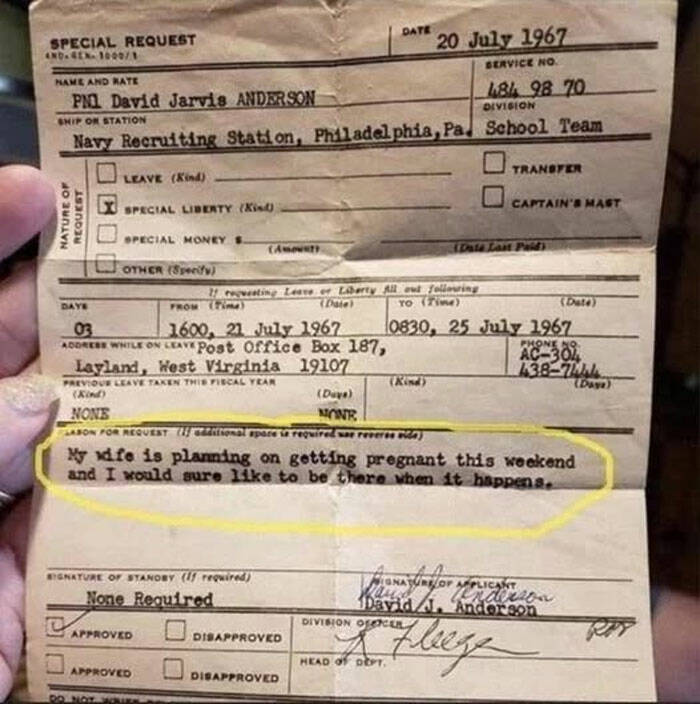 SPECIAL REQUEST
DATE 20 July 1967
NAME AND RATE
SERVICE NO.
PN1 David Jarvis ANDERSON
484 98 70
SHIP OR STATION
DIVISION
Navy Recruiting Station, Philadelphia, Pa.
School Team
NATURE OF REQUEST
LEAVE (Kind)
TRANSFER
X SPECIAL LIBERTY (Kind)
CAPTAIN'S MAST
SPECIAL MONEY $
(Amount)
(Date Last Paid)
OTHER (Specify)
If requesting Leave or Liberty fill out following
DAYS
FROM (Time) (Date)
TO (Time) (Date)
03
1600, 21 July 1967
0830, 25 July 1967
ADDRESS WHILE ON LEAVE Post Office Box 187,
PHONE NO.
AC-304
Layland, West Virginia 19107
438-7444
PREVIOUS LEAVE TAKEN THIS FISCAL YEAR
(Kind) (Days)
(Kind) (Days)
NONE NONE
REASON FOR REQUEST (If additional space is required use reverse side)
My wife is planning on getting pregnant this weekend
and I would sure like to be there when it happens.
SIGNATURE OF STANDBY (If required)
SIGNATURE OF APPLICANT
None Required
David J. Anderson
David J. Anderson
APPROVED
DISAPPROVED
DIVISION OFFICER
APPROVED
DISAPPROVED
HEAD OF DEPT.
DO NOT WRITE